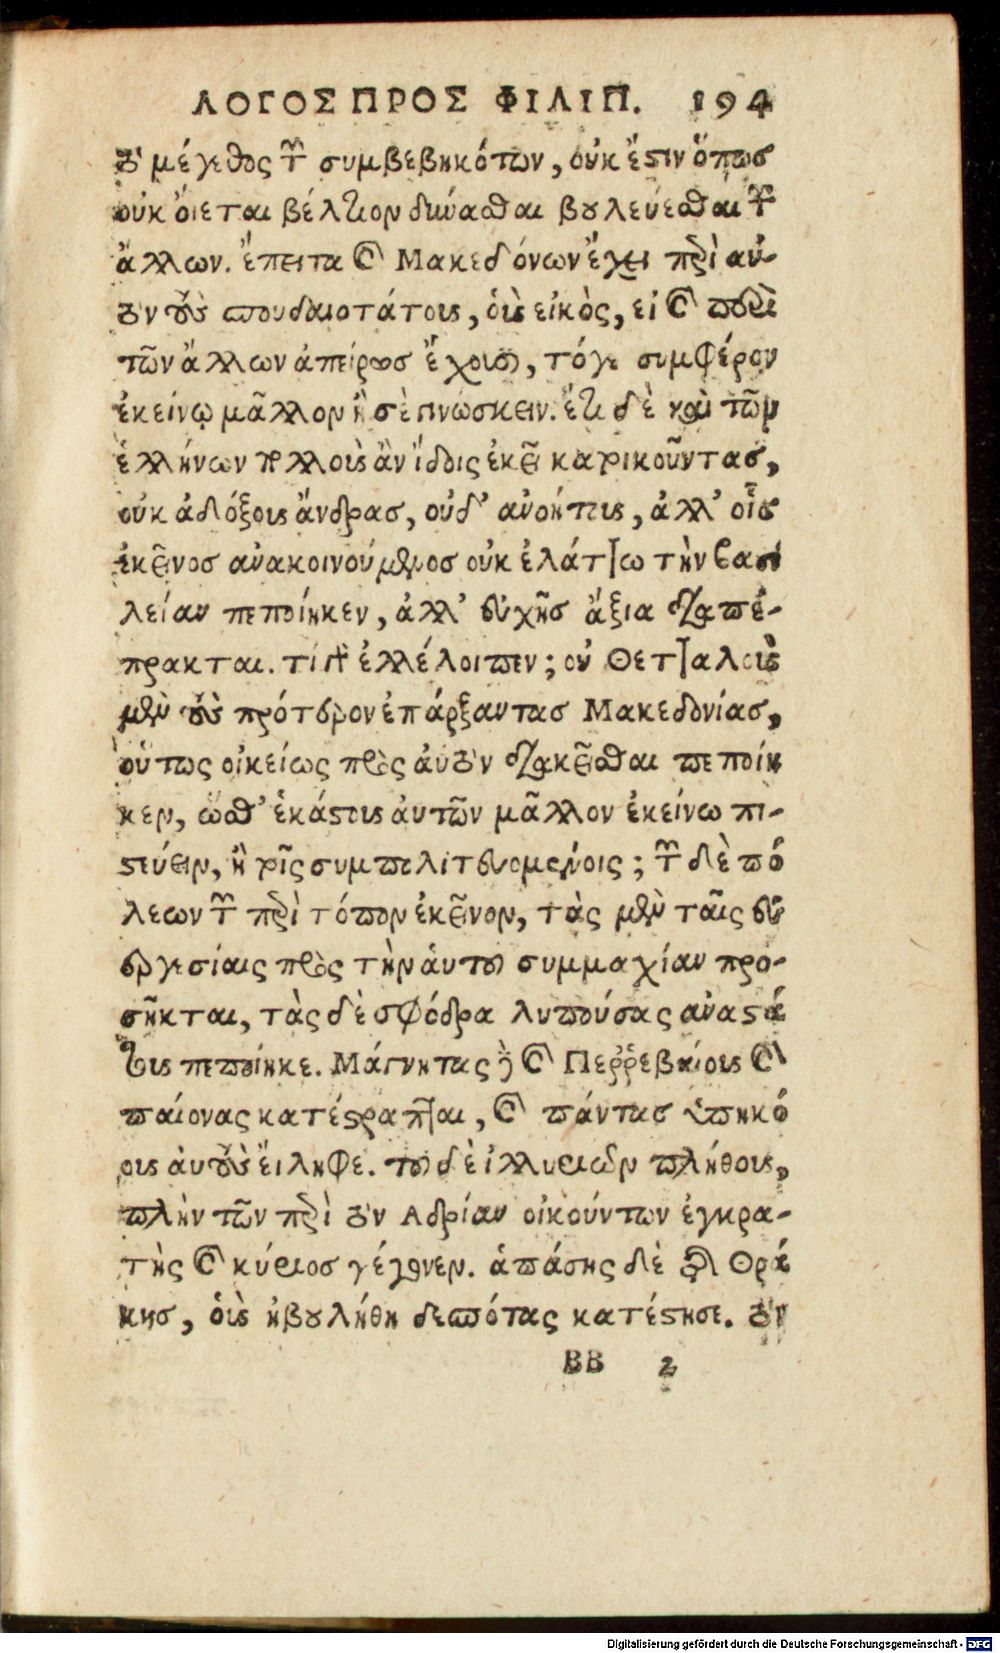 ΛΟΓΟΣ ΠΡΟΣ ΦΙΛΙΠ. 194
τὸ μέγεθος τῶν συμβεβηκότων, οὐκ ἔστιν ὅπως
οὐκ ὄιεται βέλτιον δύνασθαι βουλεύεσθαι τῶν
ἄλλων. ἔπειτα καὶ Μακεδόνων ἔχει περὶ αὑ-
τὸν τοὺς σπουδαιοτάτους, οὓς εἰκὸς, εἰ καὶ περὶ
τῶν ἄλλων ἀπείρως ἔχουσι, τόγε συμφέρον
ἐκείνῳ μᾶλλον ἢ σὲ γινώσκειν. ἔτι δὲ καὶ τῶν
ἑλλήνων πολλοὺς ἂν ἴδοις ἐκεῖ κατοικοῦντας,
οὐκ ἀδόξους ἄνδρας, οὐδ' ἀνοήτους, ἀλλ' οἷς
ἐκεῖνος ἀνακοινούμενος οὐκ ἐλάττω τὴν βασι
λείαν πεποίηκεν, ἀλλ' εὐχῆς ἄξια διαπέ-
πρακται. τί γὰρ ἐλλέλοιπεν; οὐ Θετταλοὺς
μὲν τοὺς πρότερον ἐπάρξαντας Μακεδονίας,
οὕτως οἰκείως πρὸς αὑτὸν διακεῖσθαι πεποίη
κεν, ὥσθ' ἑκάστους αὐτῶν μᾶλλον ἐκείνω πι-
στεύειν, ἢ τοῖς συμπολιτευομένοις; τῶν δὲ πό
λεων τῶν περὶ τόπον ἐκεῖνον, τὰς μὲν ταῖς εὐ
εργεσίαις πρὸς τὴν αὑτοῦ συμμαχίαν προ-
σῆκται, τὰς δὲ σφόδρα λυπούσας ἀναστά
τους πεποίηκε. Μάγνητας δὲ καὶ Περῤῥεβαίους καὶ
παίονας κατέστραπται, καὶ πάντας ὑπηκό
ους αὐτοὺς ἔιληφε. τοῦ δὲ ἰλλυριῶν πλήθους,
πλὴν τῶν περὶ τὸν Αδρίαν οἰκούντων ἐγκρα-
τὴς καὶ κύριος γέγονεν. ἁπάσης δὲ τῆς Θρά
κης, οὓς ἠβουλήθη δεσπότας κατέστησε. τὸν
BB 2
Digitalisierung gefördert durch die Deutsche Forschungsgemeinschaft - DFG